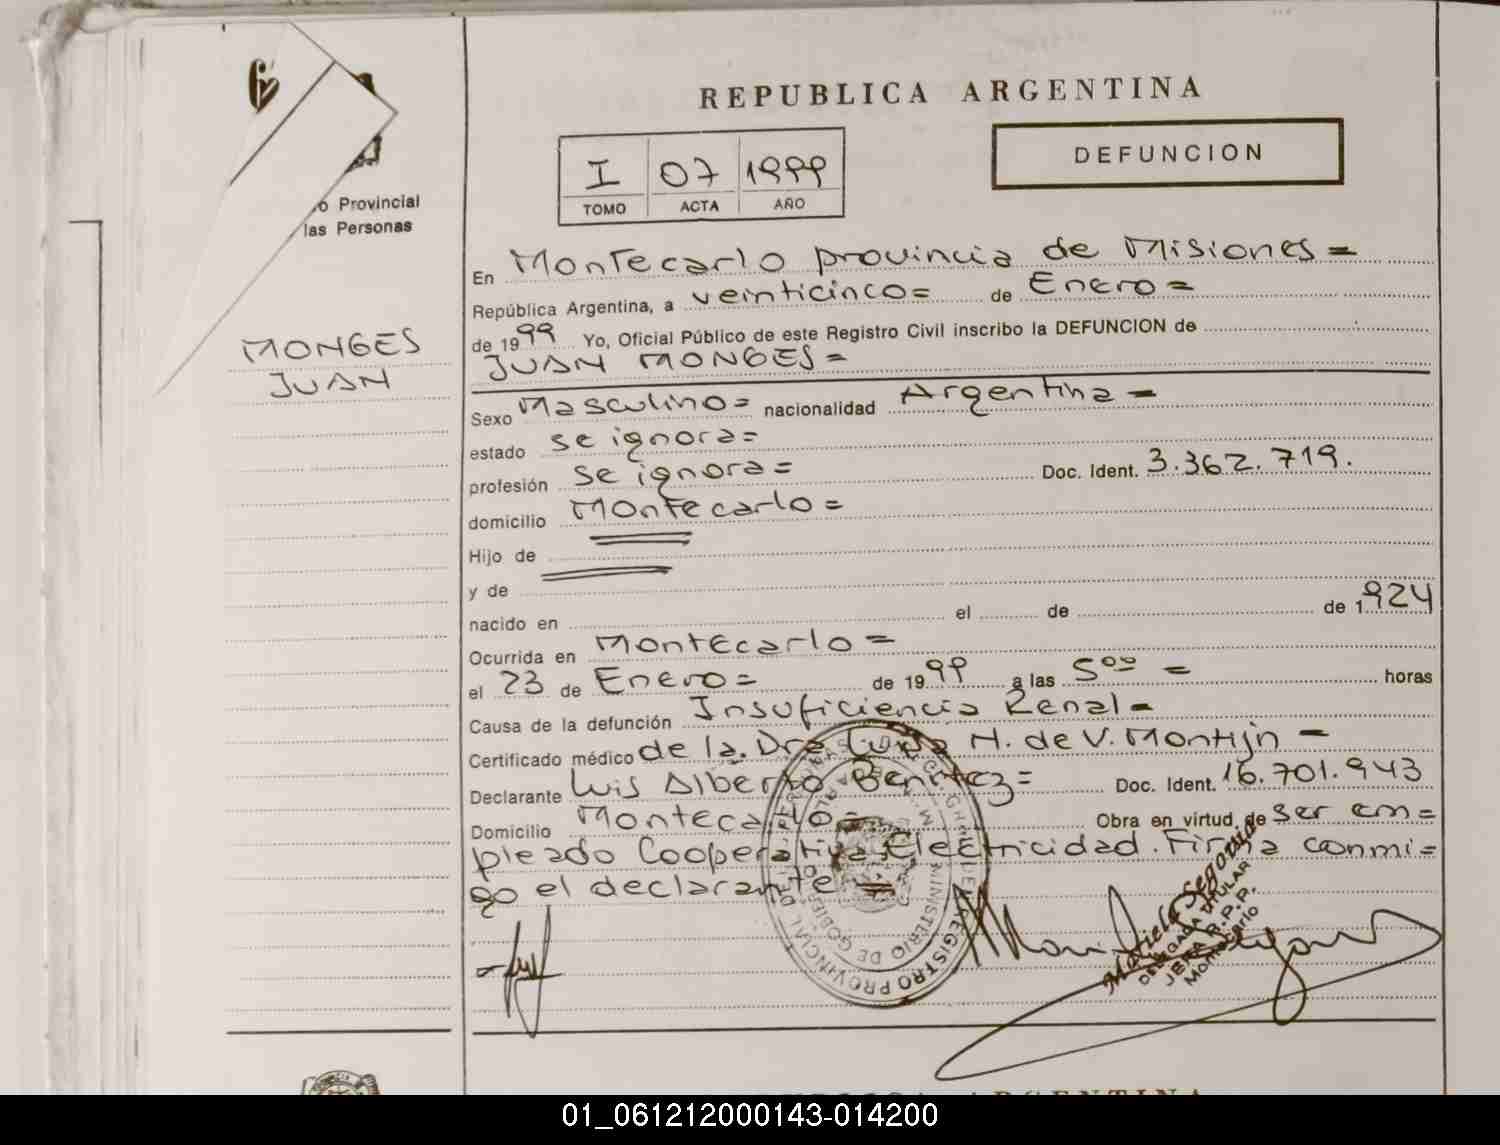 REPUBLICA ARGENTINA
I 07 1999
TOMO ACTA AÑO
DEFUNCION
o Provincial
las Personas
MONGES
JUAN
En Montecarlo provincia de Misiones=
República Argentina, a veinticinco= de Enero=
de 1999 Yo, Oficial Público de este Registro Civil inscribo la DEFUNCION de
JUAN MONGES=
Sexo Masculino= nacionalidad Argentina=
estado se ignora=
profesión se ignora= Doc. Ident. 3.362.719.
domicilio Montecarlo=
Hijo de
y de
nacido en el de de 1924
Ocurrida en Montecarlo=
el 23 de Enero= de 1999 a las 5⁰⁰ = horas
Causa de la defunción Insuficiencia Renal=
Certificado médico de la. Dra H. de V. Montijn=
Declarante Luis Alberto Benitez= Doc. Ident. 16.701.943
Domicilio Montecarlo= Obra en virtud de ser em=
pleado Cooperativa Electricidad. Firma conmi=
go el declarante=
REGISTRO PROVINCIAL DE
MINISTERIO DE GOBIERNO
Mariela Segovia
DELEGADA TITULAR
JEFA R.P.P.
Montecarlo
ARGENTINA
01_061212000143-014200